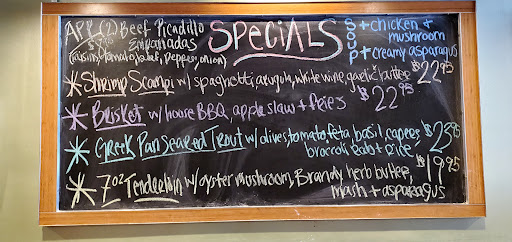 APP (2) Beef Picadillo
Empanadas
SPECIALS
SOUP
+ chicken +
mushroom
+ creamy asparagus
* Shrimp Scampi w/ spaghetti, arugula, white wine, garlic butter $22.95
* Brisket w/ house BBQ, apple slaw + fries $22.95
* Greek Pan Seared Trout w/ olives, tomato, feta, basil, capers $23.95
broccoli rabe + rice
* 7oz Tenderloin w/ oyster mushroom, Brandy herb butter, $19.95
mash + asparagus